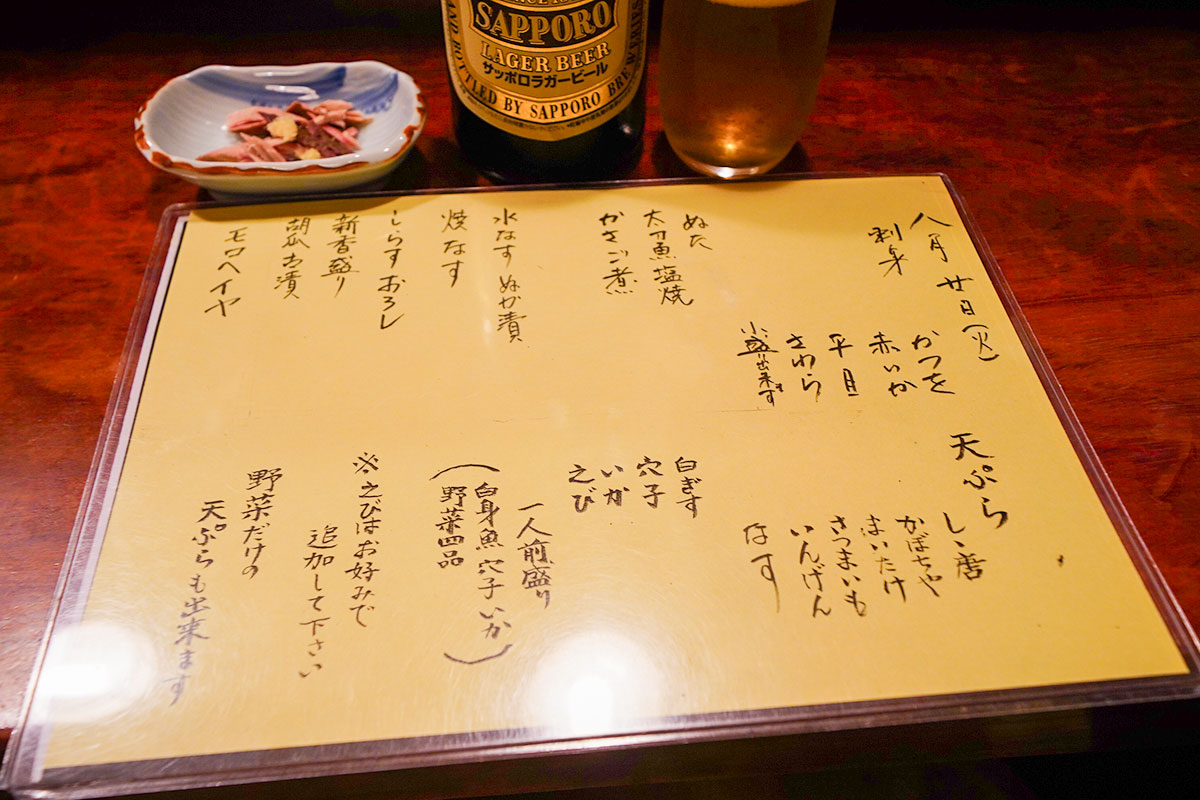 SAPPORO
LAGER BEER
サッポロラガービール
AND BOTTLED BY SAPPORO BREWERIES
八月廿日(火)
刺身
かつを
赤いか
平目
さわら
小盛り出来ます
ぬた
太刀魚塩焼
かさご煮
水なすぬか漬
焼なす
しらすおろし
新香盛り
胡瓜古漬
モロヘイヤ
天ぷら
しゝ唐
かぼちや
まいたけ
さつまいも
いんげん
なす
白ぎす
穴子
いか
えび
一人前盛り
(白身魚 穴子 いか
野菜四品)
※えびはお好みで
追加して下さい
野菜だけの
天ぷらも出来ます